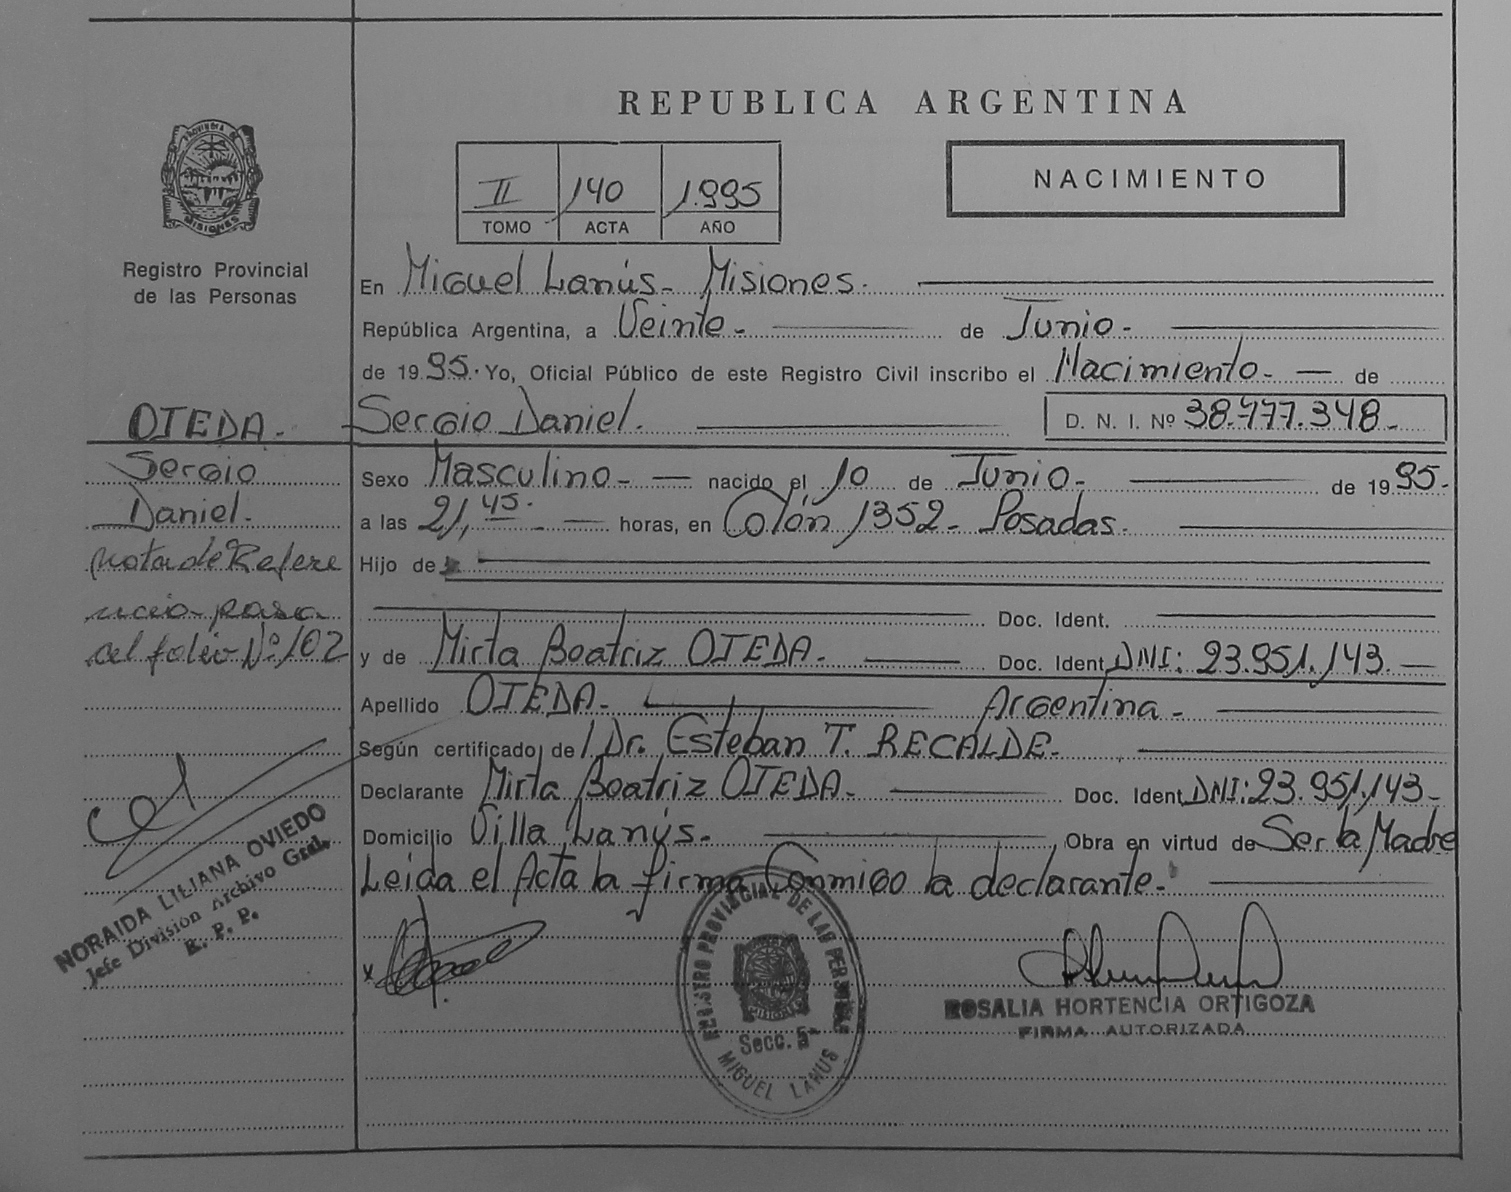 REPUBLICA ARGENTINA
PROVINCIA DE
MISIONES
Registro Provincial
de las Personas
II 140 1.995
TOMO ACTA AÑO
NACIMIENTO
En Miguel Lanús - Misiones.
República Argentina, a Veinte - de Junio -
de 1995. Yo, Oficial Público de este Registro Civil inscribo el Nacimiento - — de
Sergio Daniel.
D. N. I. Nº 38.777.348 -
OJEDA -
Sergio
Daniel.
Nota de Refere
ncia pasa
al folio Nº 102
Sexo Masculino - — nacido el 10 de Junio - de 1995.
a las 21,45. — horas, en Colón 1352 - Posadas.
Hijo de
Doc. Ident.
y de Mirta Beatriz OJEDA. Doc. Ident. DNI: 23.951.143. —
Apellido OJEDA. Argentina -
Según certificado de / Dr. Esteban T. RECALDE.
Declarante Mirta Beatriz OJEDA. Doc. Ident. DNI: 23.951.143 -
Domicilio Villa Lanús. Obra en virtud de Ser la Madre
Leida el Acta la firma Conmigo la declarante.
NORAIDA LILIANA OVIEDO
Jefe División Archivo Gral.
R. P. P.
x
REGISTRO PROVINCIAL DE LAS PERSONAS
MISIONES
Secc. 5ª
MIGUEL LANUS
ROSALIA HORTENCIA ORTIGOZA
FIRMA AUTORIZADA